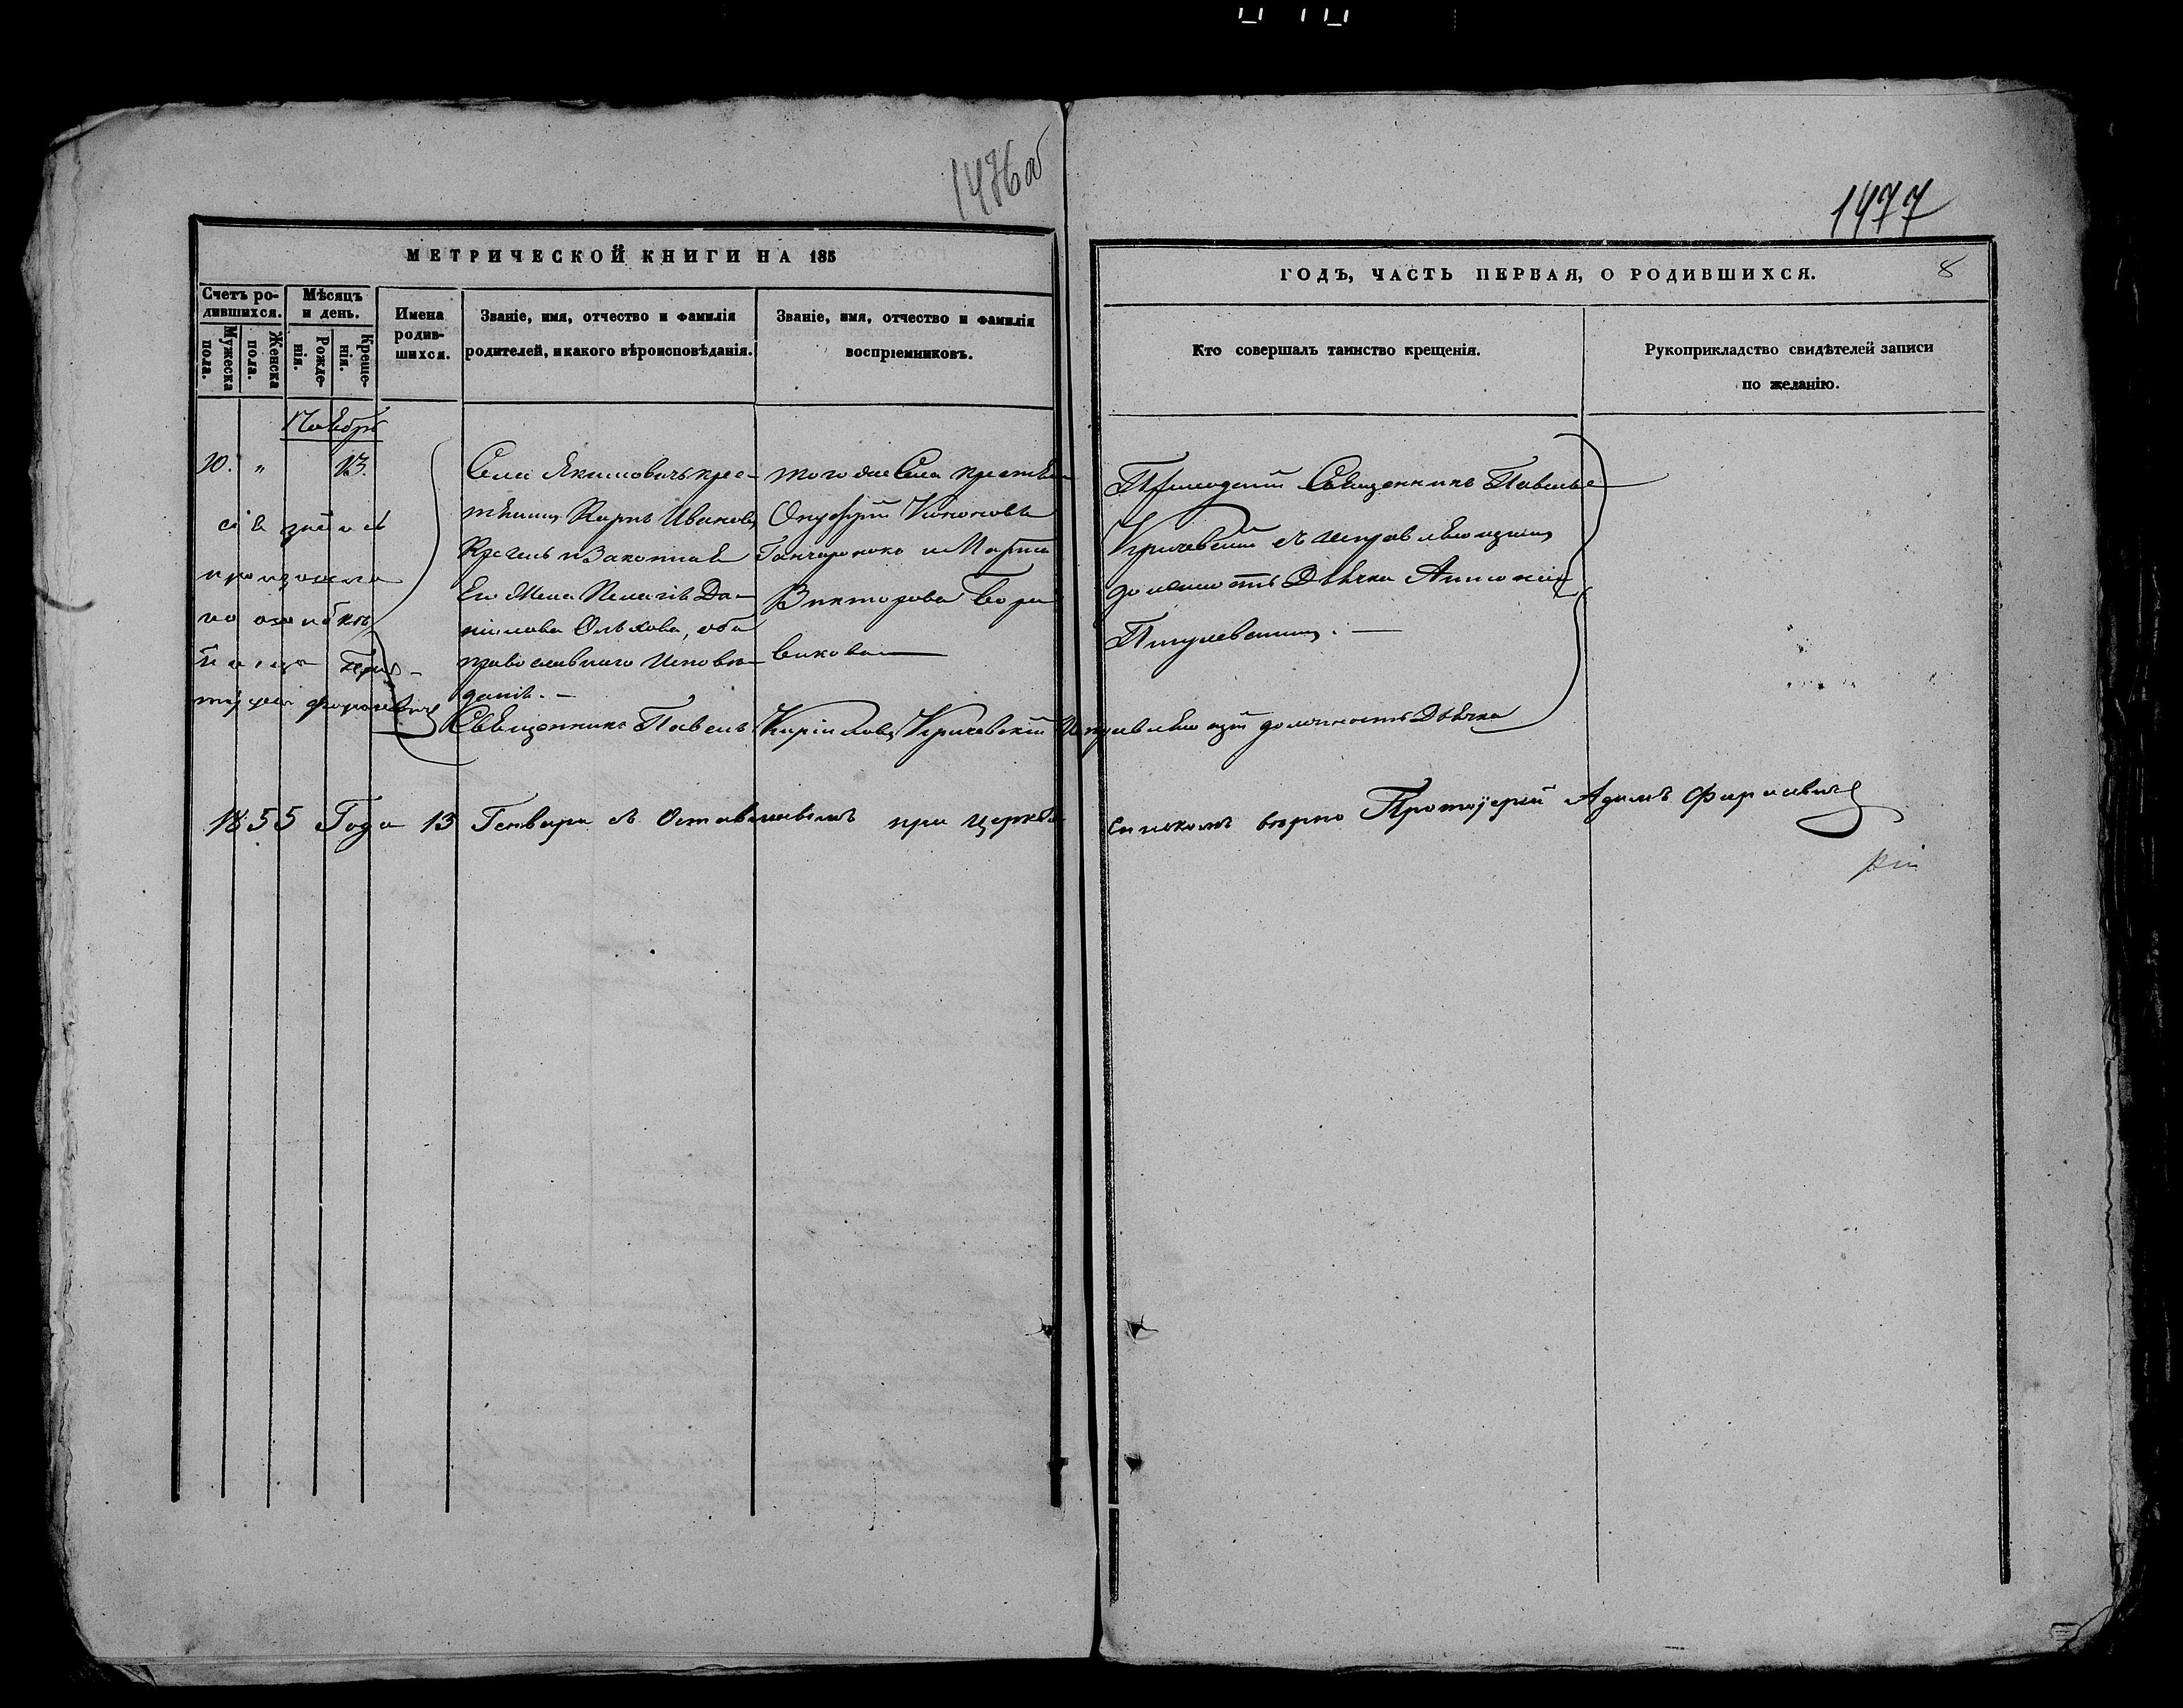 1476 об
1477
МЕТРИЧЕСКОЙ КНИГИ НА 185
ГОДЪ, ЧАСТЬ ПЕРВАЯ, О РОДИВШИХСЯ.
8
Счетъ ро-
дившихся.
Мужеска
пола.
Женска
пола.
Мѣсяцъ
и день.
Рожде-
нія.
Креще-
нія.
Имена
родив-
шихся.
Званіе, имя, отчество и фамилія
родителей, и какого вѣроисповѣданія.
Званіе, имя, отчество и фамилія
воспріемниковъ.
Кто совершалъ таинство крещенія.
Рукоприкладство свидѣтелей записи
по желанію.
Ноябрь
10. " 13.
произошла
по ошибкѣ
Села Якимовичъ крес-
тянинъ Карпъ Ивановъ
и Законная
Его Жена Пелагія Да-
нилова Ольхова, оба
православнаго Исповѣ-
данія. —
того же Села крестян
Онуфрій Кононовъ
Гончаронокъ и Марья
Викторова
Приходскій Священникъ Павелъ
Кричевскій съ исправляющимъ
должность Дьячка Антоніемъ
Священникъ Павелъ Кириловъ Кричевскій Исправляющій должность Дьячка
1855 Года 13 Генваря съ Оставшимъ при церкви спискомъ вѣрно Протоіерей Адамъ